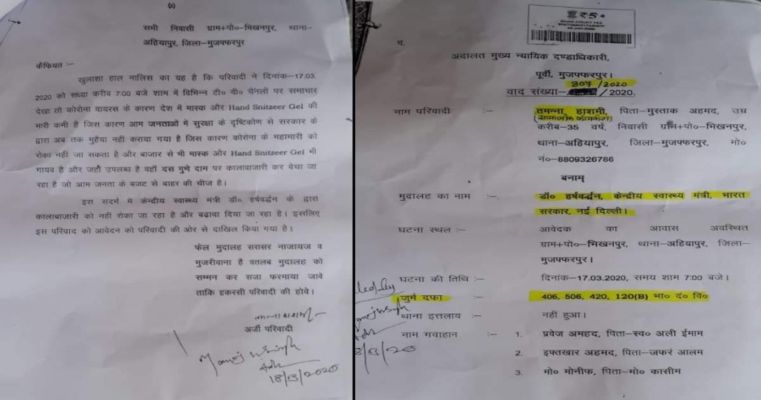 (2)
सभी निवासी ग्राम+पो०-भिखनपुर, थाना-
अहियापुर, जिला-मुजफ्फरपुर
कैफियत:-
खुलाशा हाल नालिस का यह है कि परिवादी ने दिनांक-17.03.
2020 को संध्या करीब 7:00 बजे शाम में विभिन्न टी० वी० चैनलों पर समाचार
देखा तो कोरोना वायरस के कारण देश में मास्क और Hand Snitzeer Gel की
भारी कमी है जिस कारण आम जनताओं में सुरक्षा के दृष्टिकोण से सरकार के
द्वारा अब तक मुहैया नहीं कराया गया है जिस कारण कोरोना के महामारी को
रोका नहीं जा सकता है और बाजार से भी मास्क और Hand Snitzeer Gel भी
गायब है और जहाँ उपलब्ध है वहाँ दस गुणे दाम पर कालाबाजारी कर बेचा जा
रहा है जो आम जनता के बजट से बाहर की चीज है।
इस सदर्भ में केन्द्रीय स्वास्थ्य मिंत्री डॉ० हर्षवर्द्धन के द्वारा
कालाबाजारी को नहीं रोका जा रहा है और बढ़ावा दिया जा रहा है। इसलिए
इस परिवाद को आवेदन को परिवादी की ओर से दाखिल किया गया है।
फेल मुदालह सरासर नाजायज व
मुजरीवाना है वतलब मुदालह को
सम्मन कर सजा फरमाया जावे
ताकि हकरसी परिवादी की होवे।
अर्जी परिवादी
Manoj Kr Singh
Adv
18/3/2020
₹25
अदालत मुख्य न्यायिक दण्डाधिकारी,
पूर्वी, मुजफ्फरपुर।
वाद संख्या- /2020.
नाम परिवादी :- तमन्ना हाशमी, पिता-मुस्ताक अहमद, उम्र
करीब-35 वर्ष, निवासी ग्राम+पो०-भिखनपुर,
थाना-अहियापुर, जिला-मुजफ्फरपुर, मो०
न०-8809326786
बनाम्
मुदालह का नाम :- डॉ० हर्षवर्द्धन, केन्द्रीय स्वास्थ्य मिंत्री, भारत
सरकार, नई दिल्ली।
घटना स्थल :- आवेदक का आवास अवस्थित
ग्राम+पो०-भिखनपुर, थाना-अहियापुर, जिला-
मुजफ्फरपुर।
घटना की तिथि :- दिनांक-17.03.2020, समय शाम 7:00 बजे।
जुर्म दफा :- 406, 506, 420, 120(B) भा० द० वि०
थाना इत्तलाय :- नहीं हुआ।
नाम गवाहान :- 1. प्रवेज अमहद, पिता-स्व० अली ईमाम
2. इफ्तखार अहमद, पिता-जफर आलम
3. मो० मोनीफ, पिता-मो० कासीम
18/3/2020